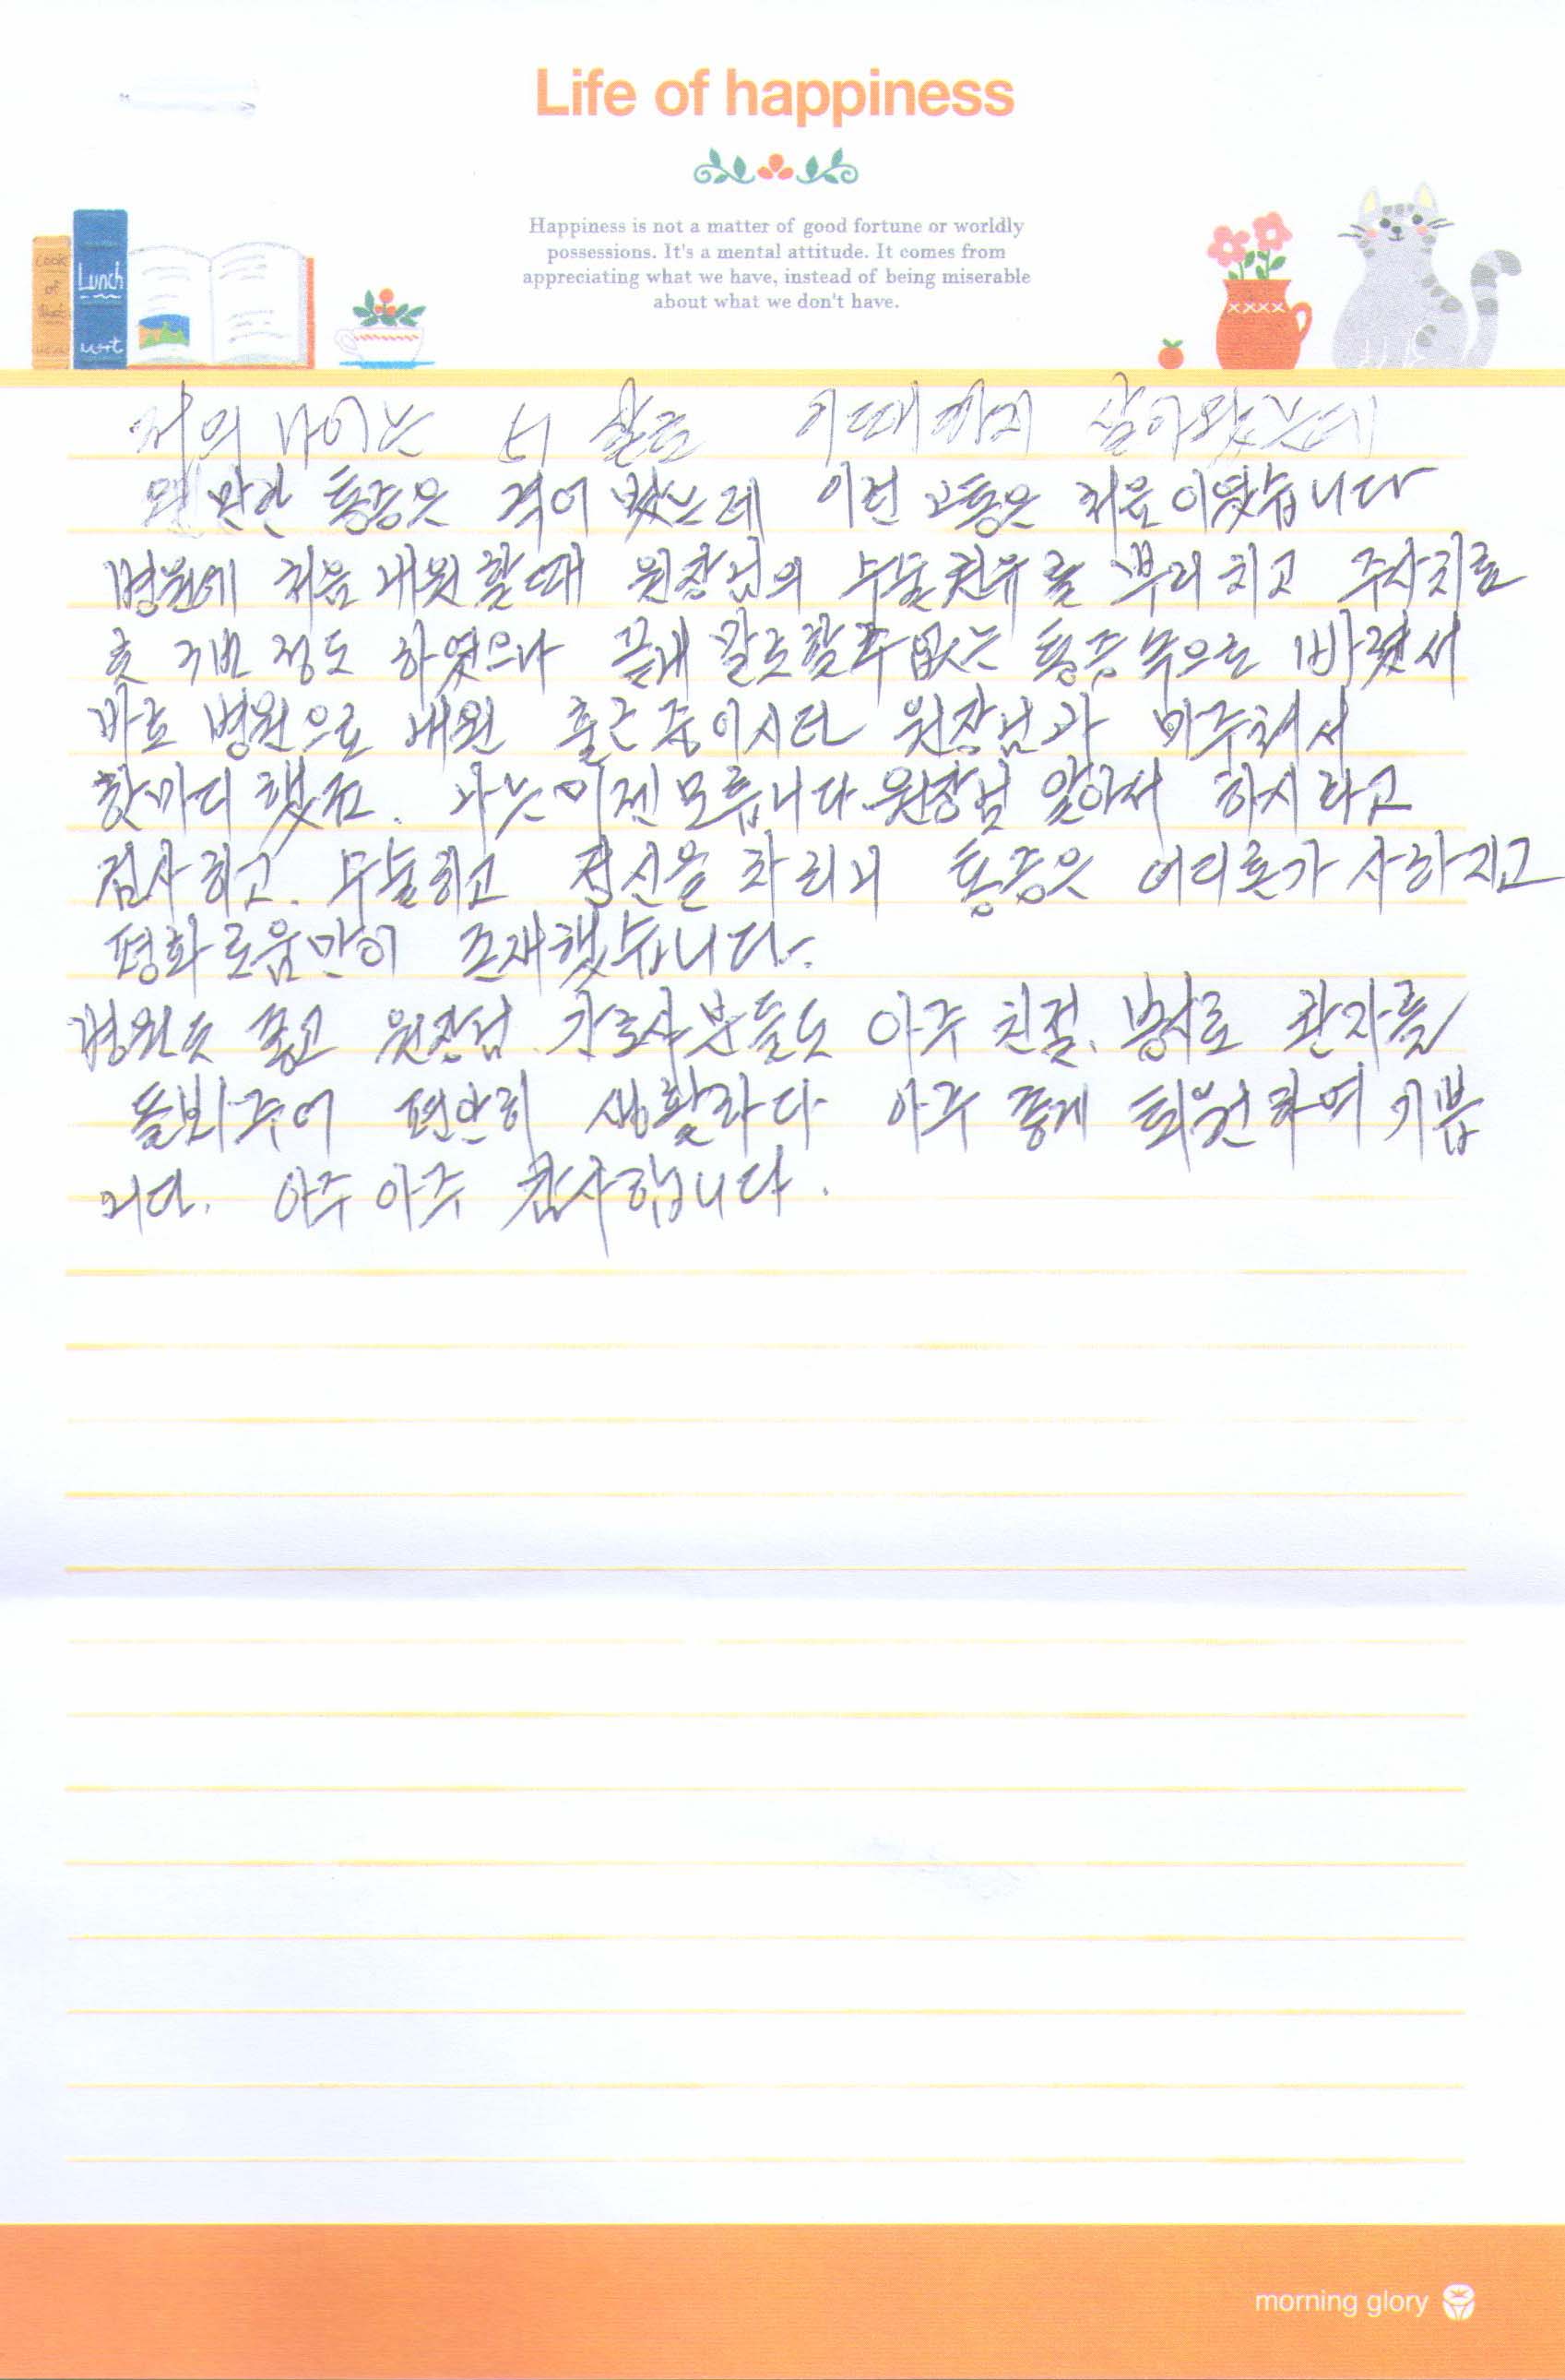 Life of happiness
Happiness is not a matter of good fortune or worldly
possessions. It's a mental attitude. It comes from
appreciating what we have, instead of being miserable
about what we don't have.
Lunch
저의 나이는 이때까지 살아왔는데
왠만한 통증은 격어 봤는데 이런 고통은 처음이였습니다
병원에 처음 내원할때 원장님의 수술권유를 뿌리치고 주사치료
로 3번 정도 하였으나 끝내 말로할수없는 통증속으로
바로 병원으로 내원 출근중이시던 원장님과 마주처서
한마디 했죠. 나는 이젠 모릅니다. 원장님 알아서 하시라고
검사하고. 수술하고 정신을 차리니 통증은 어디론가 사라지고
평화로움만이 존재했습니다.
병원도 좋고 원장님. 간호사분들도 아주 친절. 환자를
돌봐주어 편안히 생활하다 아주 좋게 퇴원하여 기쁩
니다. 아주 아주 감사합니다.
morning glory